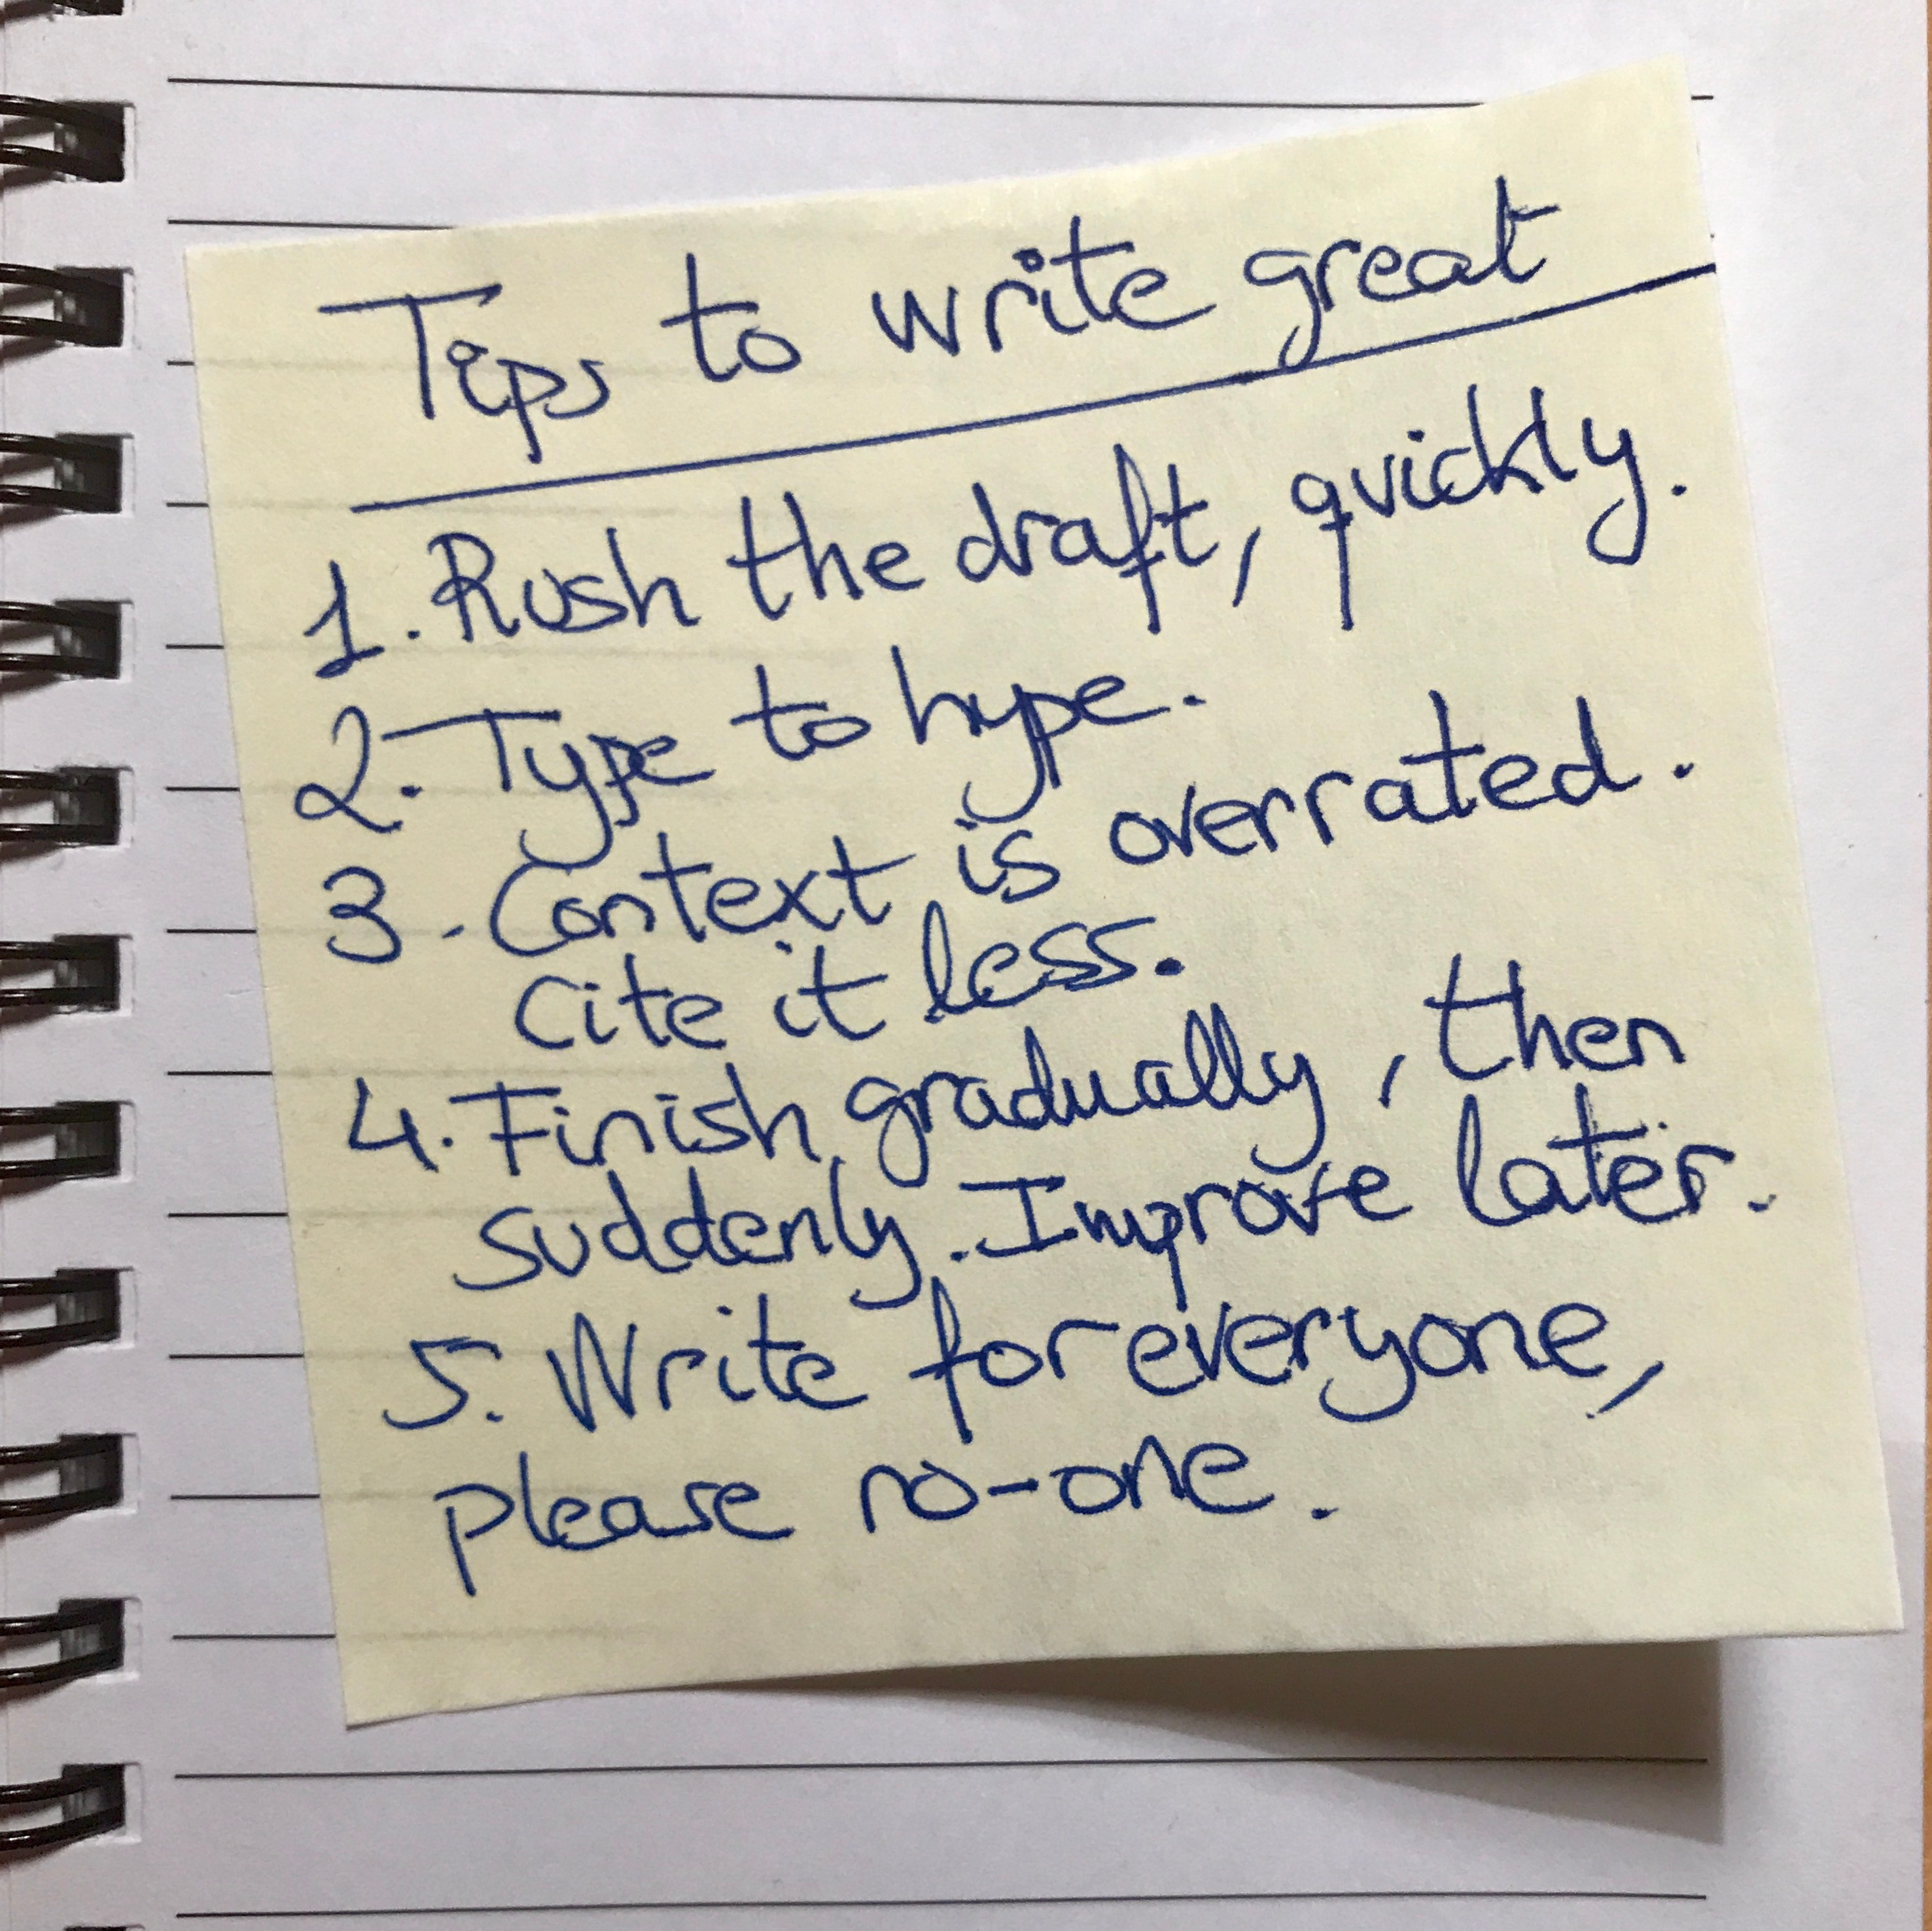 Tips to write great
1. Rush the draft, quickly.
2. Type to hype.
3. Context is overrated.
Cite it less.
4. Finish gradually, then
suddenly. Improve later.
5. Write for everyone,
please no-one.